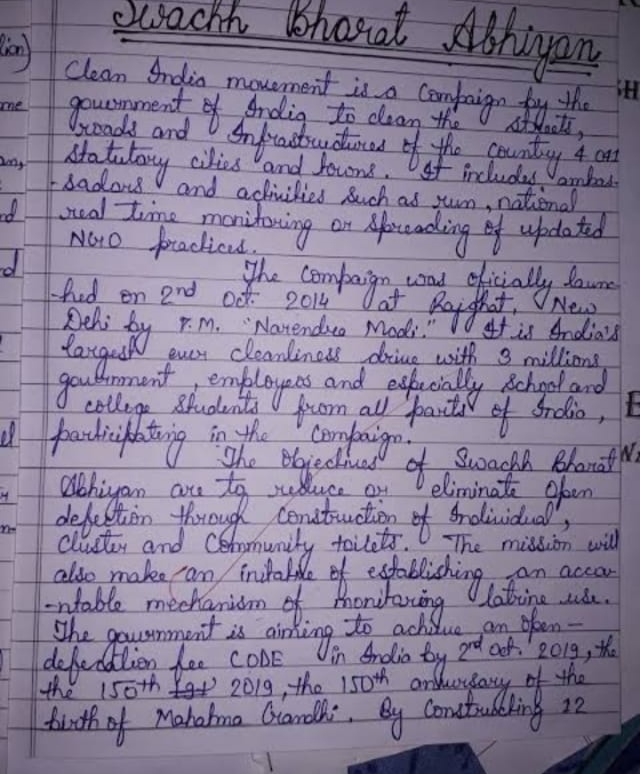 Swachh Bharat Abhiyan
Clean India movement is a Campaign by the
government of India to clean the streets,
roads and Infrastructures of the country 4 041
Statutory cities and towns. It includes ambas-
-sadors and activities such as run, national
real time monitoring or spreading of updated
NGO practices.
The Compaign was oficially laun
-hed on 2nd Oct. 2014 at Rajghat, New
Dehi by P.M. "Narendra Modi." It is India's
largest ever cleanliness drive with 3 millions
government, employees and especially School and
college Students from all parts of India,
participating in the Compaign.
The Objectives of Swachh Bharat
Abhiyan are to reduce or eliminate Open
defection through Construction of Individual,
Cluster and Community toilets. The mission will
also make an initative of establishing an accou
-ntable mechanism of monitoring latrine use.
The government is aiming to achieve an Open-
defecation fee CODE in India by 2nd Oct. 2019, the
the 150th 2019, the 150th anniversary of the
birth of Mahatma Gandhi. By Constructing 12